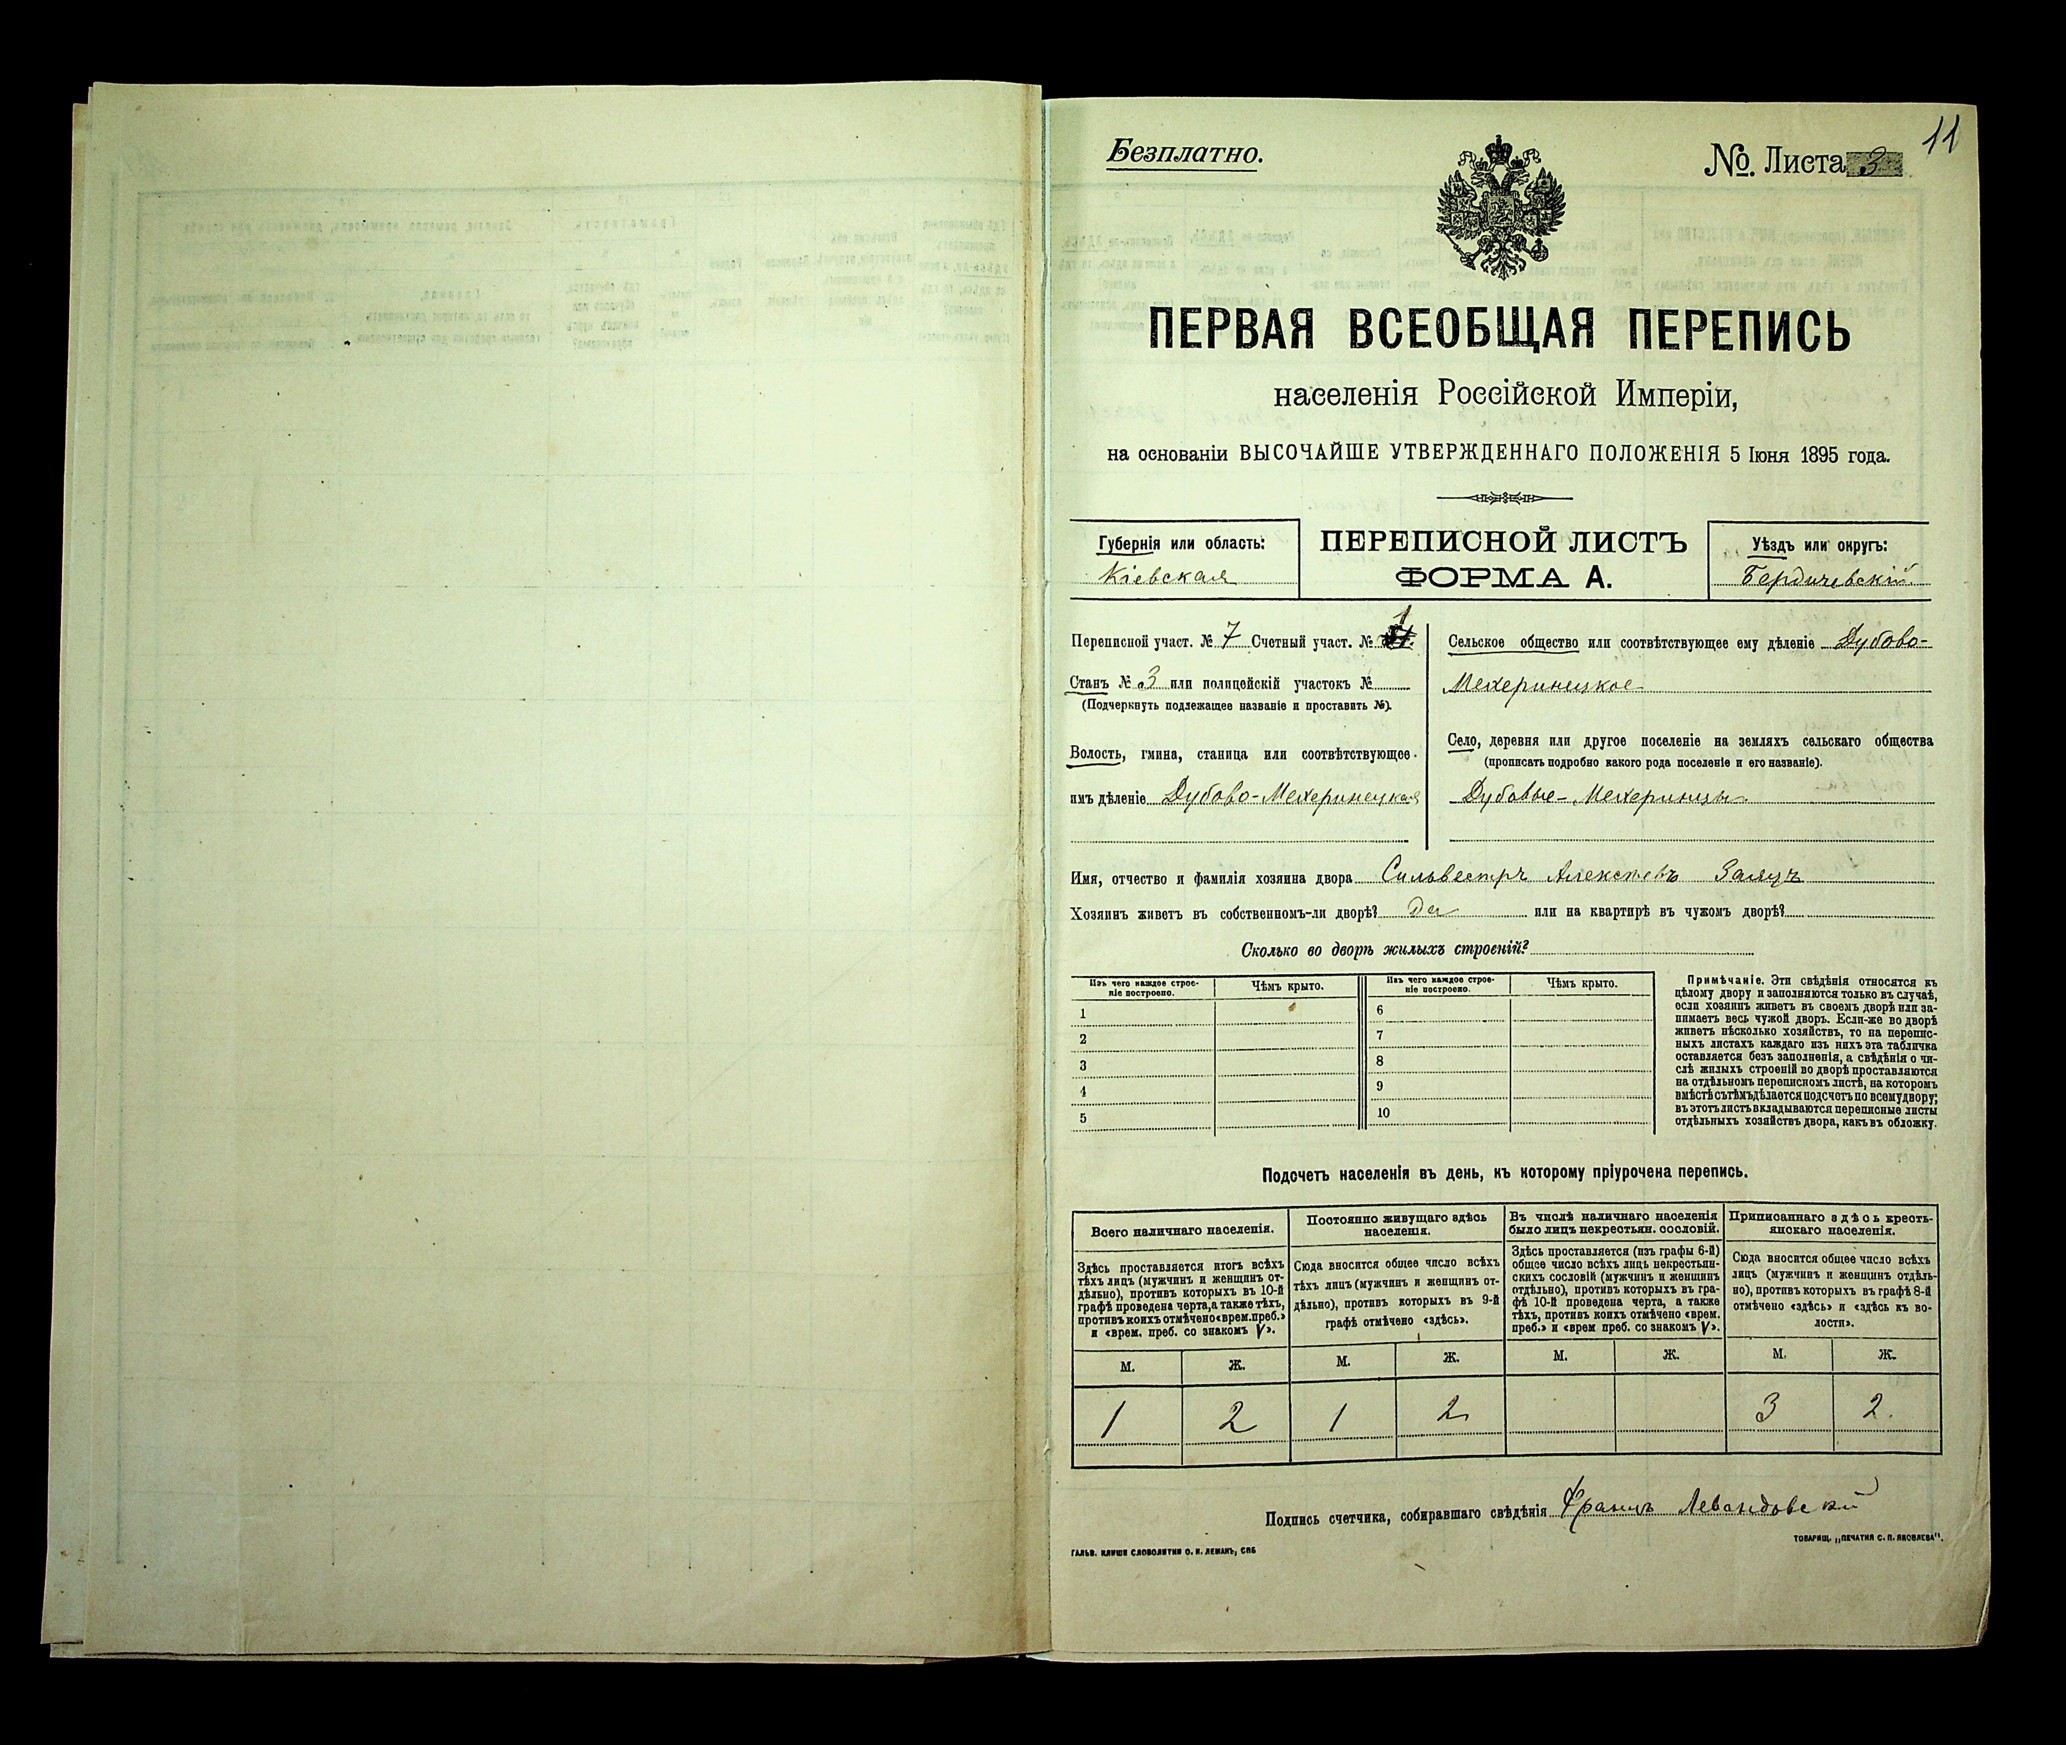 11
Безплатно.
№. Листа 3
ПЕРВАЯ ВСЕОБЩАЯ ПЕРЕПИСЬ
населенія Россійской Имперіи,
на основаніи ВЫСОЧАЙШЕ УТВЕРЖДЕННАГО ПОЛОЖЕНІЯ 5 Іюня 1895 года.
Губернія или область:
Кіевская
ПЕРЕПИСНОЙ ЛИСТЪ
ФОРМА А.
Уѣздъ или округъ:
Бердичевскій
Переписной участ. № 7 Счетный участ. № 1
Станъ № 3 или полицейскій участокъ №
(Подчеркнуть подлежащее названіе и проставить №).
Волость, гмина, станица или соотвѣтствующее
имъ дѣленіе Дубово-Мехеринецкая
Сельское общество или соотвѣтствующее ему дѣленіе Дубово-
Мехеринецкое
Село, деревня или другое поселеніе на земляхъ сельскаго общества
(прописать подробно какого рода поселеніе и его названіе).
Дубовые-Мехеринцы
Имя, отчество и фамилія хозяина двора Сильвестръ Алексѣевъ Заяцъ
Хозяинъ живетъ въ собственномъ-ли дворѣ? Да или на квартирѣ въ чужомъ дворѣ?
Сколько во дворѣ жилыхъ строеній?
Изъ чего каждое строе-
ніе построено.
Чѣмъ крыто.
Изъ чего каждое строе-
ніе построено.
Чѣмъ крыто.
1
2
3
4
5
6
7
8
9
10
Примѣчаніе. Эти свѣдѣнія относятся къ
цѣлому двору и заполняются только въ случаѣ,
если хозяинъ живетъ въ своемъ дворѣ или за-
нимаетъ весь чужой дворъ. Если-же во дворѣ
живетъ нѣсколько хозяйствъ, то на перепис-
ныхъ листахъ каждаго изъ нихъ эта табличка
оставляется безъ заполненія, а свѣдѣнія о чи-
слѣ жилыхъ строеній во дворѣ проставляются
на отдѣльномъ переписномъ листѣ, на которомъ
вмѣстѣ съ тѣмъ дѣлается подсчетъ по всему двору;
въ этотъ листъ вкладываются переписные листы
отдѣльныхъ хозяйствъ двора, какъ въ обложку.
Подсчетъ населенія въ день, къ которому пріурочена перепись.
Всего наличнаго населенія.
Здѣсь проставляется итогъ всѣхъ
тѣхъ лицъ (мужчинъ и женщинъ от-
дѣльно), противъ которыхъ въ 10-й
графѣ проведена черта, а также тѣхъ,
противъ коихъ отмѣчено «врем. преб.»
и «врем. преб. со знакомъ V».
М. Ж.
1 2
Постоянно живущаго здѣсь
населенія.
Сюда вносится общее число всѣхъ
тѣхъ лицъ (мужчинъ и женщинъ от-
дѣльно), противъ которыхъ въ 9-й
графѣ отмѣчено «здѣсь».
М. Ж.
1 2
Въ числѣ наличнаго населенія
было лицъ некрестьян. сословій.
Здѣсь проставляется (изъ графы 6-й)
общее число всѣхъ лицъ некрестьян-
скихъ сословій (мужчинъ и женщинъ
отдѣльно), противъ которыхъ въ гра-
фѣ 10-й проведена черта, а также
тѣхъ, противъ коихъ отмѣчено «врем.
преб.» и «врем преб. со знакомъ V».
М. Ж.
Приписаннаго здѣсь кресть-
янскаго населенія.
Сюда вносится общее число всѣхъ
лицъ (мужчинъ и женщинъ отдѣль-
но), противъ которыхъ въ графѣ 8-й
отмѣчено «здѣсь» и «здѣсь къ во-
лости».
М. Ж.
3 2.
Подпись счетчика, собиравшаго свѣдѣнія Францъ Левандовскій
ГАЛЬВ. КЛИШЕ СЛОВОЛИТНИ О. И. ЛЕМАНЪ, СПБ
ТОВАРИЩ. „ПЕЧАТНЯ С. П. ЯКОВЛЕВА".